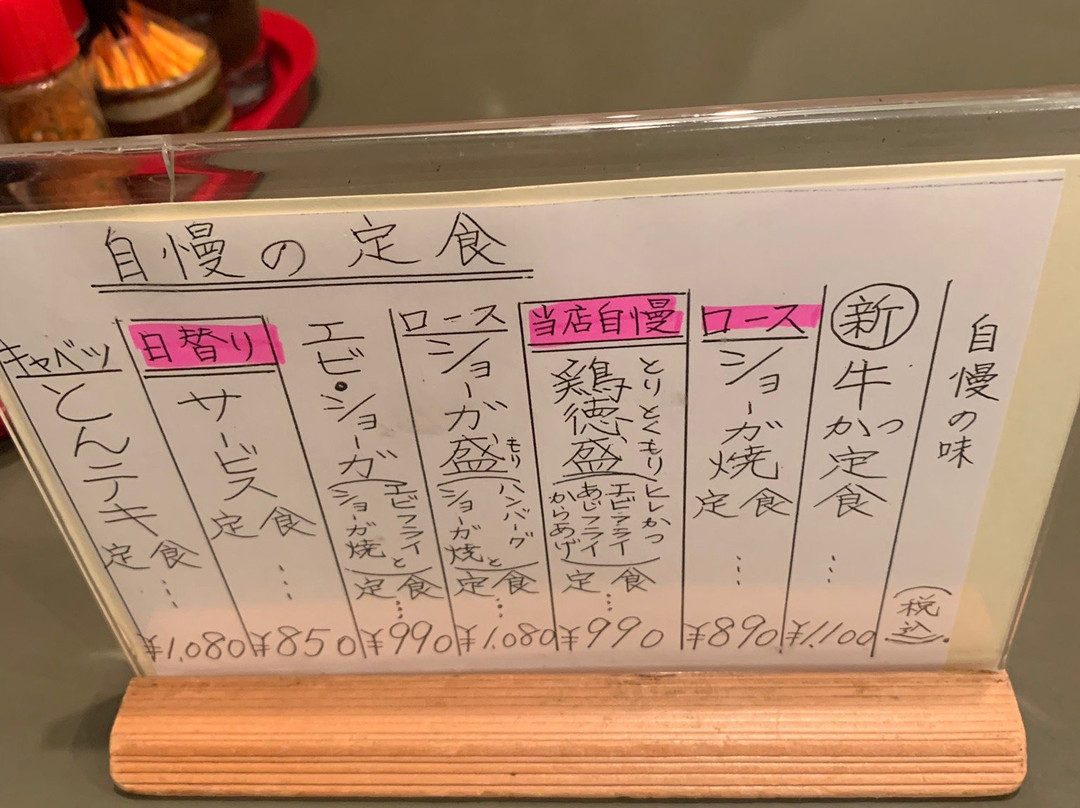 自慢の定食
自慢の味
(税込)
新
牛かつ定食
…
¥1,100
ロース
ショーガ焼
定食
…
¥890
当店自慢
鶏徳盛
とりとくもり
(ヒレかつ
エビフライ
あじフライ
からあげ)
定食
…
¥990
ロース
ショーガ盛
もり
(ハンバーグと
ショーガ焼)
定食
…
¥1,080
エビ・ショーガ
(エビフライと
ショーガ焼)
定食
…
¥990
日替り
サービス
定食
…
¥850
キャベツ
とんテキ
定食
…
¥1,080